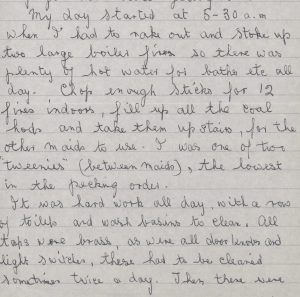 My day started at 5-30 a.m
when I had to rake out and stoke up
two large boiler fires so there was
plenty of hot water for baths etc all
day. Chop enough sticks for 12
fires indoors, fill up all the coal
hods and take them upstairs, for the
other maids to use. I was one of two
"tweenies" (between maids), the lowest
in the pecking order.
It was hard work all day, with a row
of toilets and wash basins to clean. All
taps were brass, as were all door knobs and
light switches, these had to be cleaned
sometimes twice a day. Then there were